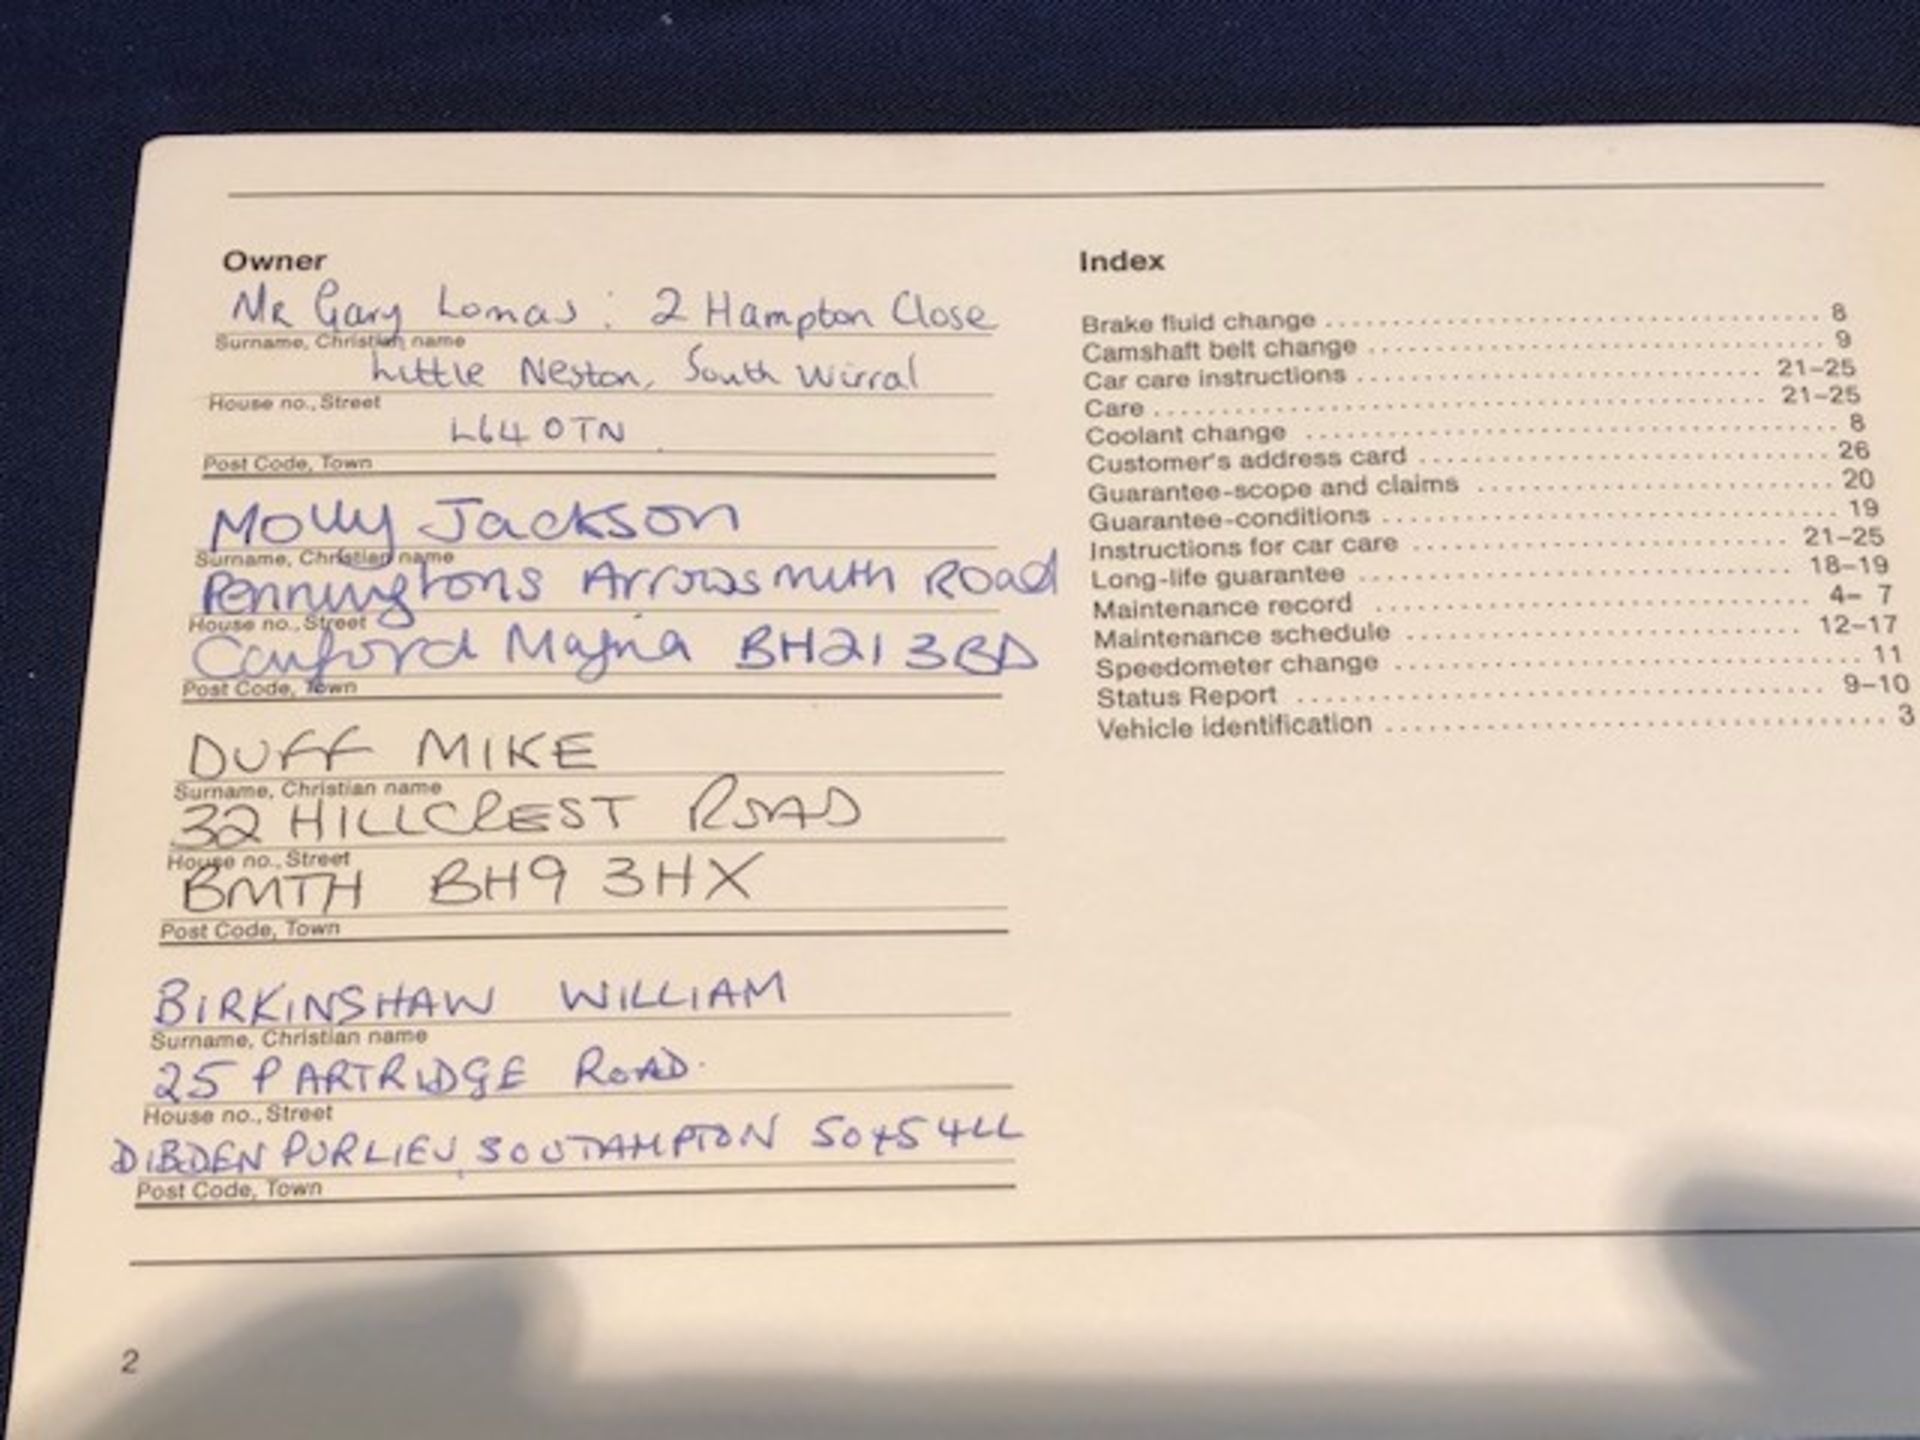 Owner
Mr Gary Lomas : 2 Hampton Close
Surname, Christian name
Little Neston, South Wirral
House no., Street
L64 0TN
Post Code, Town
Molly Jackson
Surname, Christian name
Penningtons Arrowsmith Road
House no., Street
Canford Magna BH21 3BD
Post Code, Town
DUFF MIKE
Surname, Christian name
32 HILLCREST ROAD
House no., Street
BMTH BH9 3HX
Post Code, Town
BIRKINSHAW WILLIAM
Surname, Christian name
25 PARTRIDGE ROAD.
House no., Street
DIBDEN PURLIEU, SOUTAHMPTON SO45 4LL
Post Code, Town
2
Index
Brake fluid change 8
Camshaft belt change 9
Car care instructions 21–25
Care 21–25
Coolant change 8
Customer's address card 26
Guarantee-scope and claims 20
Guarantee-conditions 19
Instructions for car care 21–25
Long-life guarantee 18–19
Maintenance record 4– 7
Maintenance schedule 12–17
Speedometer change 11
Status Report 9–10
Vehicle identification 3